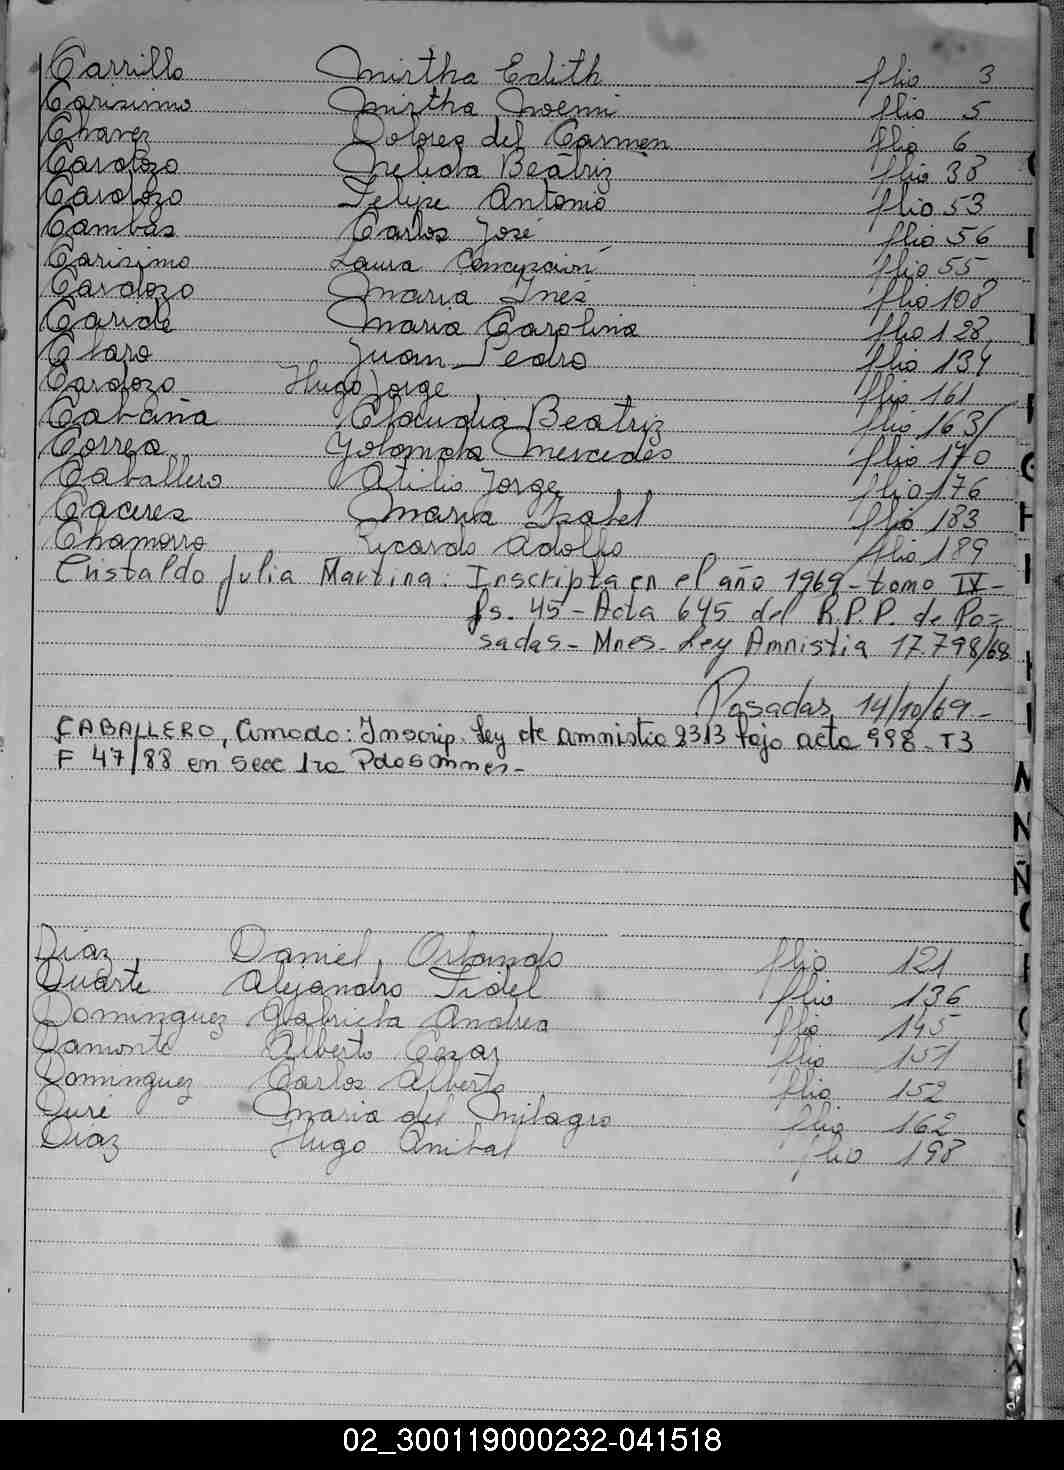 Carrillo Mirtha Edith flio 3
Carisimo Mirtha Noemi flio 5
Chavez Dolores del Carmen flio 6
Cardozo Nelida Beatriz flio 38
Cardozo Felipe Antonio flio 53
Cambas Carlos José flio 56
Carisimo Laura Concepción flio 55
Cardozo Maria Inés flio 108
Caride Maria Carolina flio 128
Claro Juan Pedro flio 134
Cardozo Hugo Jorge flio 161
Cabaña Claudia Beatriz flio 163
Correa Yolanda Mercedes flio 170
Caballero Atilio Jorge flio 176
Caceres Maria Isabel flio 183
Chamorro Ricardo Adolfo flio 189
Cristaldo Julia Martina: Inscripta en el año 1969 - tomo IX -
fs. 45 - Acta 645 del R.P.P. de Po=
sadas - Mnes. Ley Amnistia 17.798/68
Posadas, 14/10/69 -
CABALLERO, Amado: Inscrip. Ley de amnistia 2313 bajo acta 998 - T3
F 47/88 en Secc 1ra Pdas Mnes -
Diaz, Daniel Orlando flio 121
Duarte Alejandro Fidel flio 136
Dominguez Gabriela Andrea flio 145
Damonte Alberto Cesar flio 151
Dominguez Carlos Alberto flio 152
Duré Maria del Milagro flio 162
Diaz Hugo Anibal flio 198
02_300119000232-041518